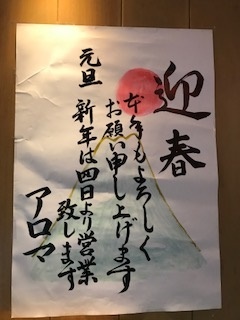 迎春
本年もよろしく
お願い申し上げます
元旦 新年は四日より営業
致します
アロマ